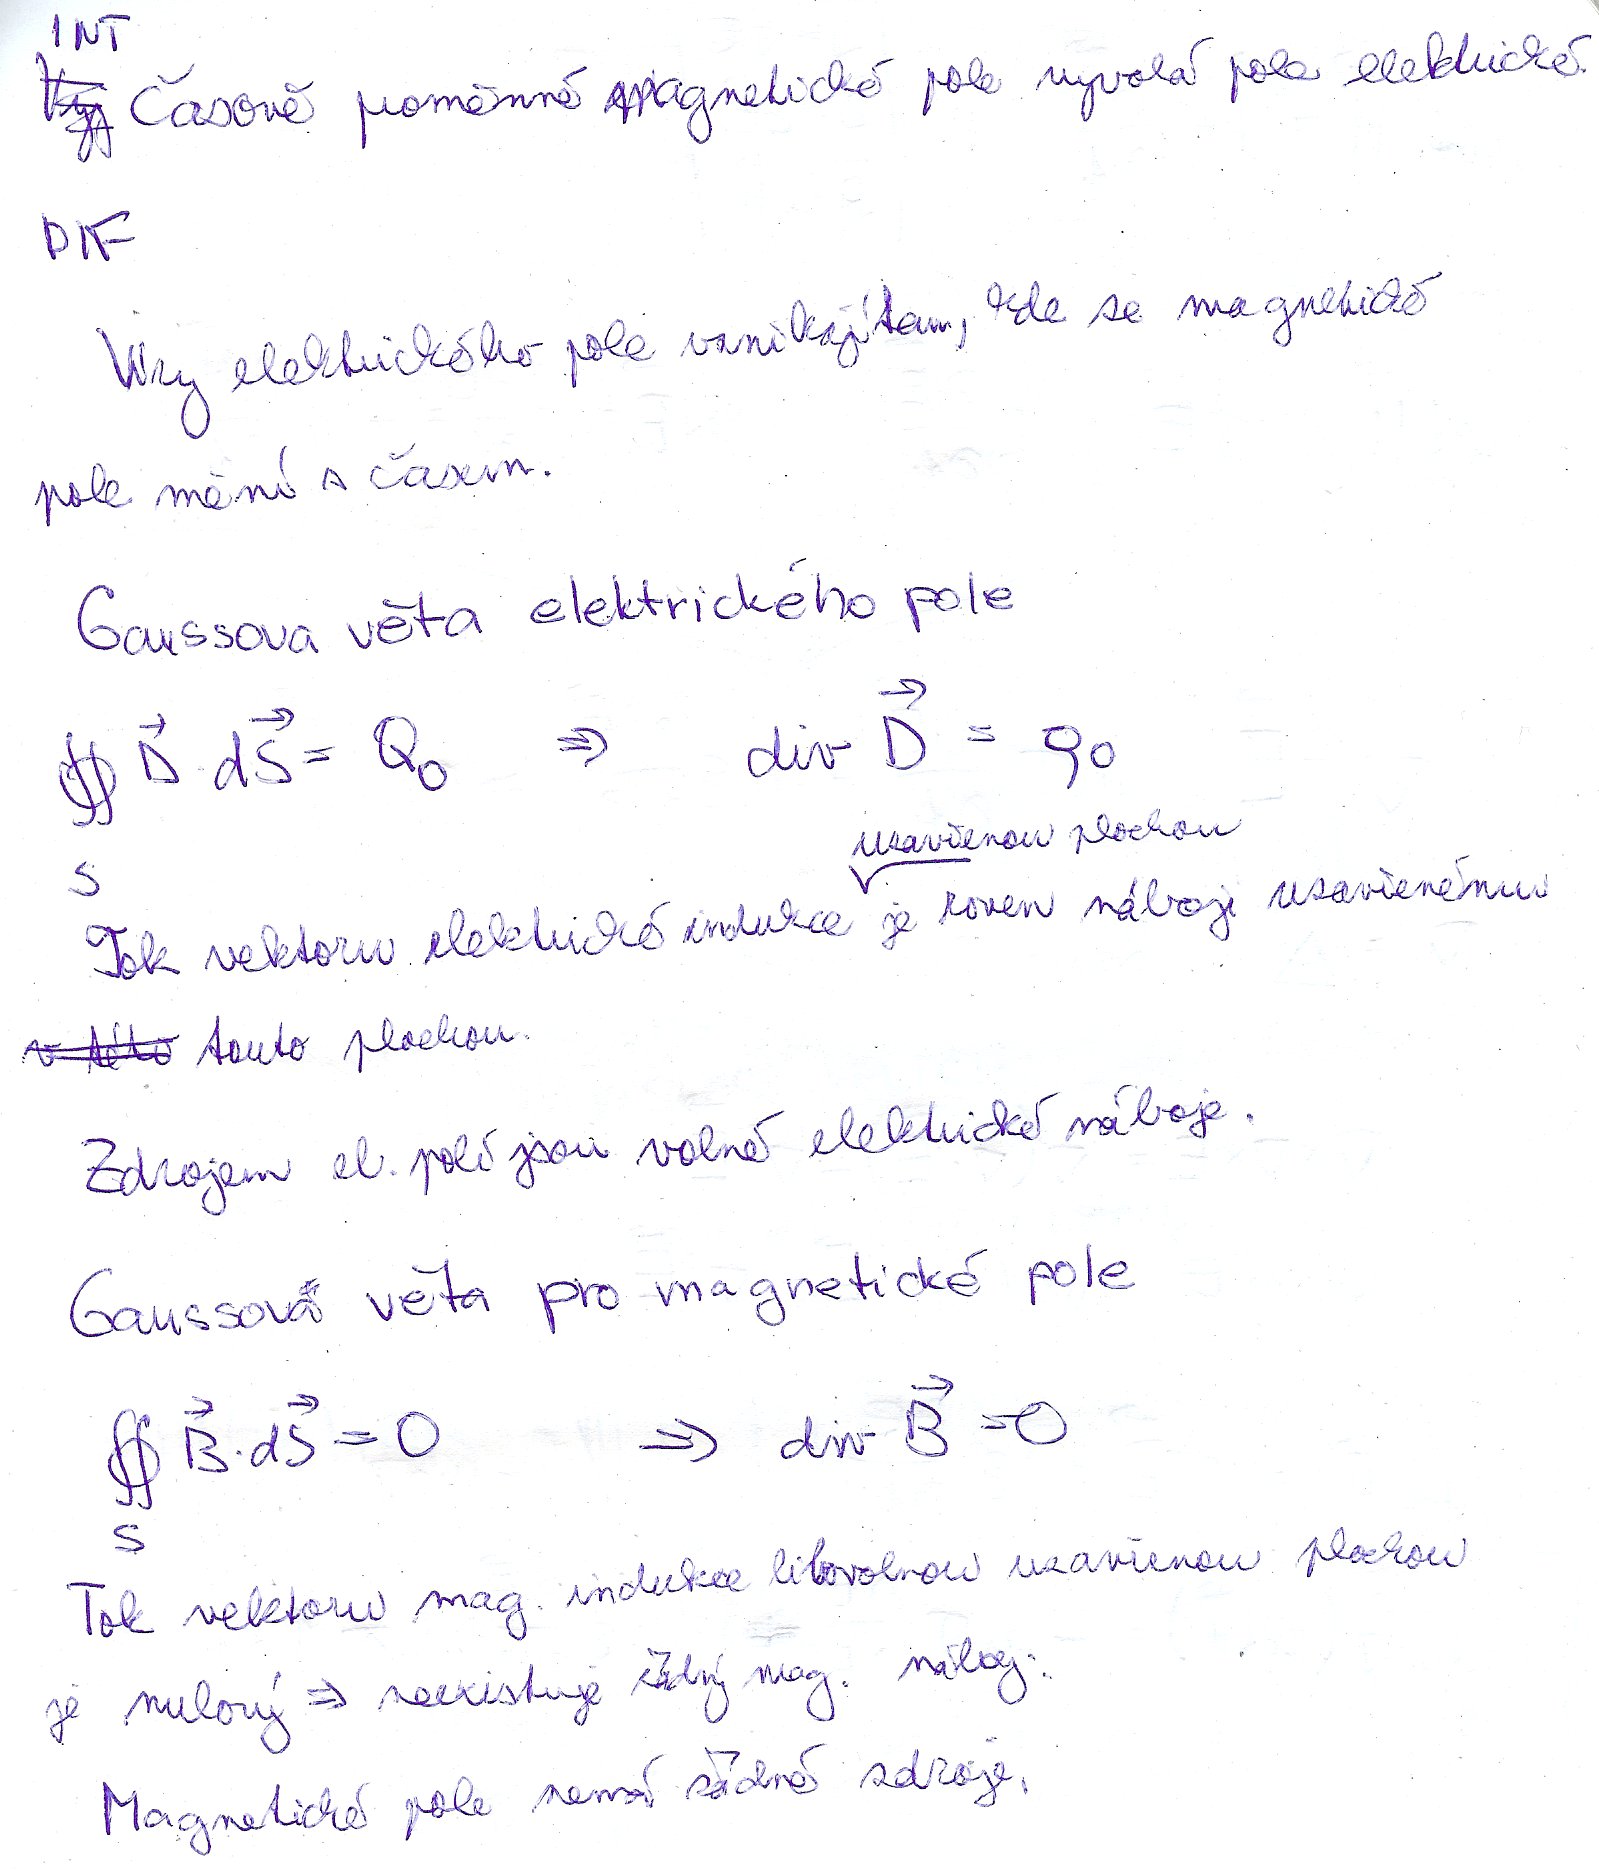 INT
Časově proměnné magnetické pole vyvolá pole elektrické.
DIF
Víry elektrického pole vznikají tam, kde se magnetické
pole mění s časem.
Gaussova věta elektrického pole
∯ D⃗ · dS⃗ = Q₀ ⇒ div D⃗ = ρ₀
S
uzavřenou plochou
Tok vektoru elektrické indukce je roven náboji uzavřenému
v této touto plochou.
Zdrojem el. polí jsou volné elektrické náboje.
Gaussova věta pro magnetické pole
∯ B⃗ · dS⃗ = 0 ⇒ div B⃗ = 0
S
Tok vektoru mag. indukce libovolnou uzavřenou plochou
je nulový ⇒ neexistuje žádný mag. náboj.
Magnetické pole nemá žádné zdroje.